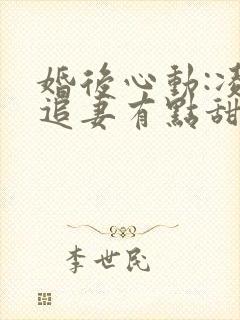 婚後心動:凌
追妻有點甜
李世民